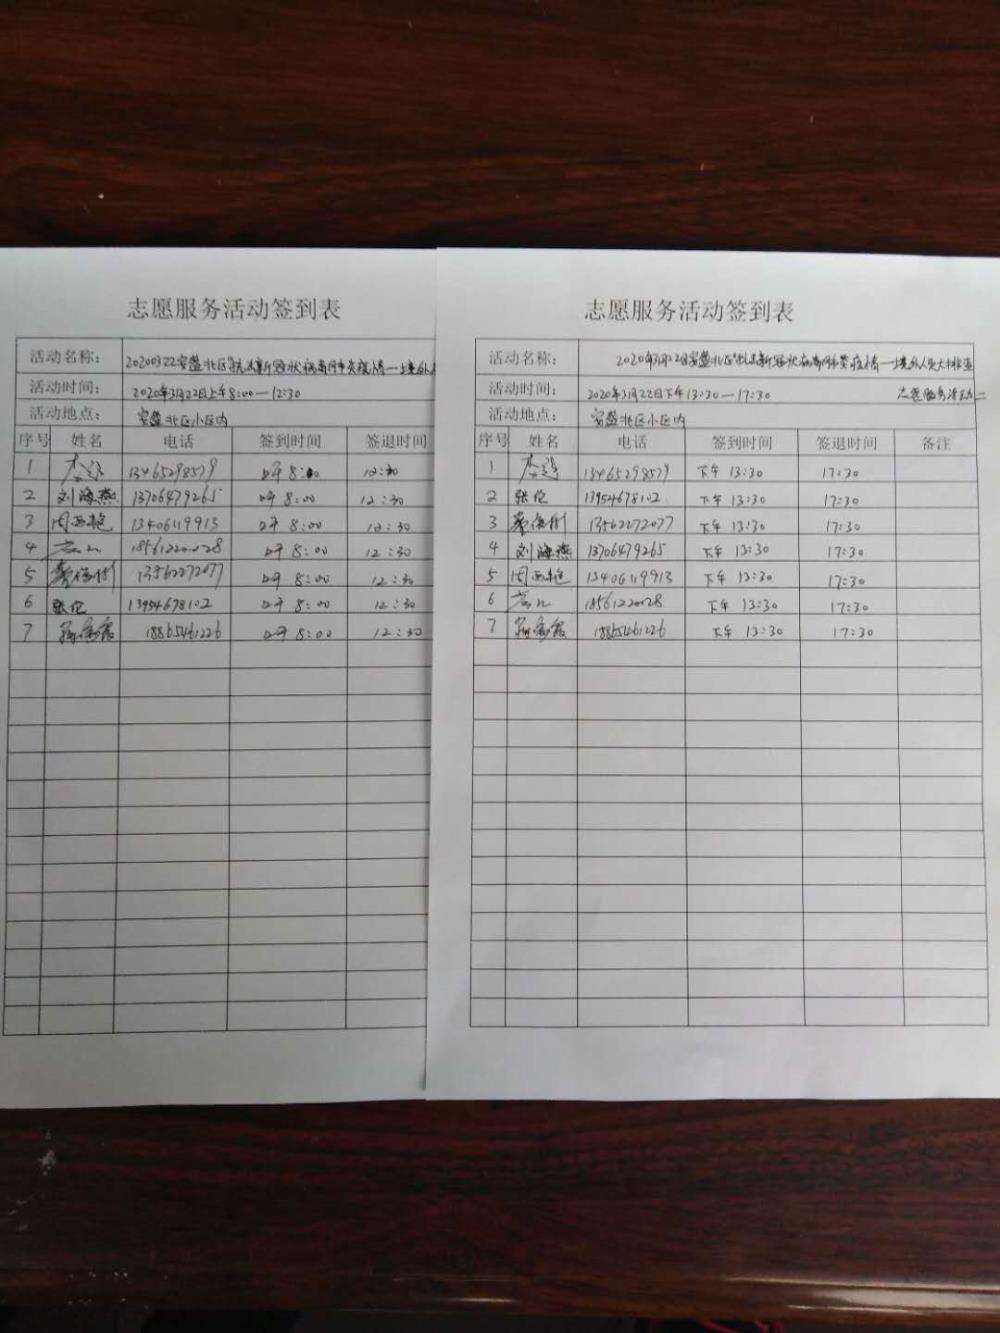 志愿服务活动签到表
活动名称: 20200322安盛北区"抗击新冠状病毒肺炎疫情—境外人
活动时间: 2020年3月22日上午8:00—12:30
活动地点: 安盛北区小区内
序号 姓名 电话 签到时间 签退时间
1 13465298579 8:00 12:30
2 刘海燕 13706479265 8:00 12:30
3 周西艳 13406119913 8:00 12:30
4 18561220028 8:00 12:30
5 13562272077 8:00 12:30
6 张伦 13954678102 8:00 12:30
7 18865461226 8:00 12:30
志愿服务活动签到表
活动名称: 2020年3月22日安盛北区"抗击新冠状病毒肺炎疫情—境外人员大排查
活动时间: 2020年3月22日下午13:30—17:30 志愿服务活动二
活动地点: 安盛北区小区内
序号 姓名 电话 签到时间 签退时间 备注
1 13465298579 下午 13:30 17:30
2 张伦 13954678102 下午 13:30 17:30
3 13562272077 下午 13:30 17:30
4 刘海燕 13706479265 下午 13:30 17:30
5 周西艳 13406119913 下午 13:30 17:30
6 18561220028 下午 13:30 17:30
7 18865461226 下午 13:30 17:30